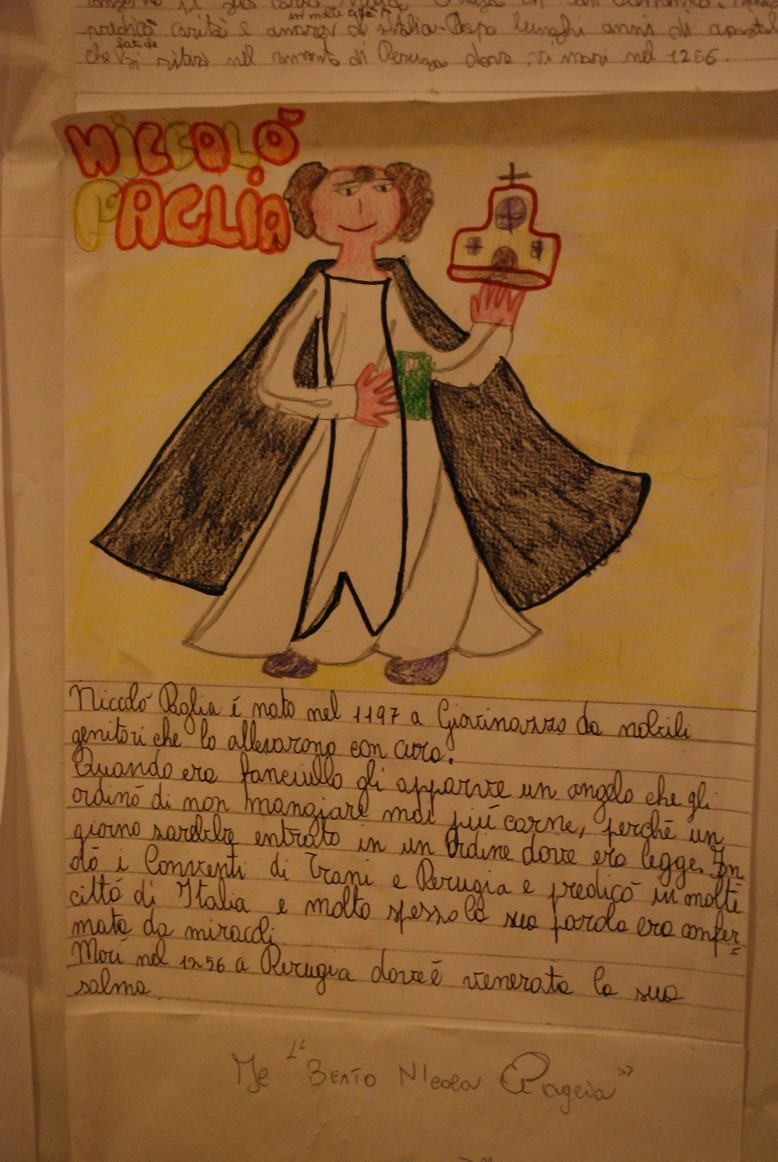 predicò carità e amore in molte città d'Italia. Dopo lunghi anni di
che si ritirò nel convento di Perugia dove vi morì nel 1256.
NICCOLÓ
PAGLIA
Niccoló Paglia é nato nel 1197 a Giovinazzo da nobili
genitori che lo allevarono con cura.
Quando era fanciullo gli apparve un angelo che gli
ordinó di non mangiare mai piú carne, perché un
giorno sarebbe entrato in un Ordine dove era legge. Fon
dó i Conventi di Trani e Perugia e predicó in molte
cittá di Italia e molto spesso la sua parola era confer=
mata da miracoli
Morí nel 1256 a Perugia dove é venerata la sua
salma.
"Beato Nicola Paglia"